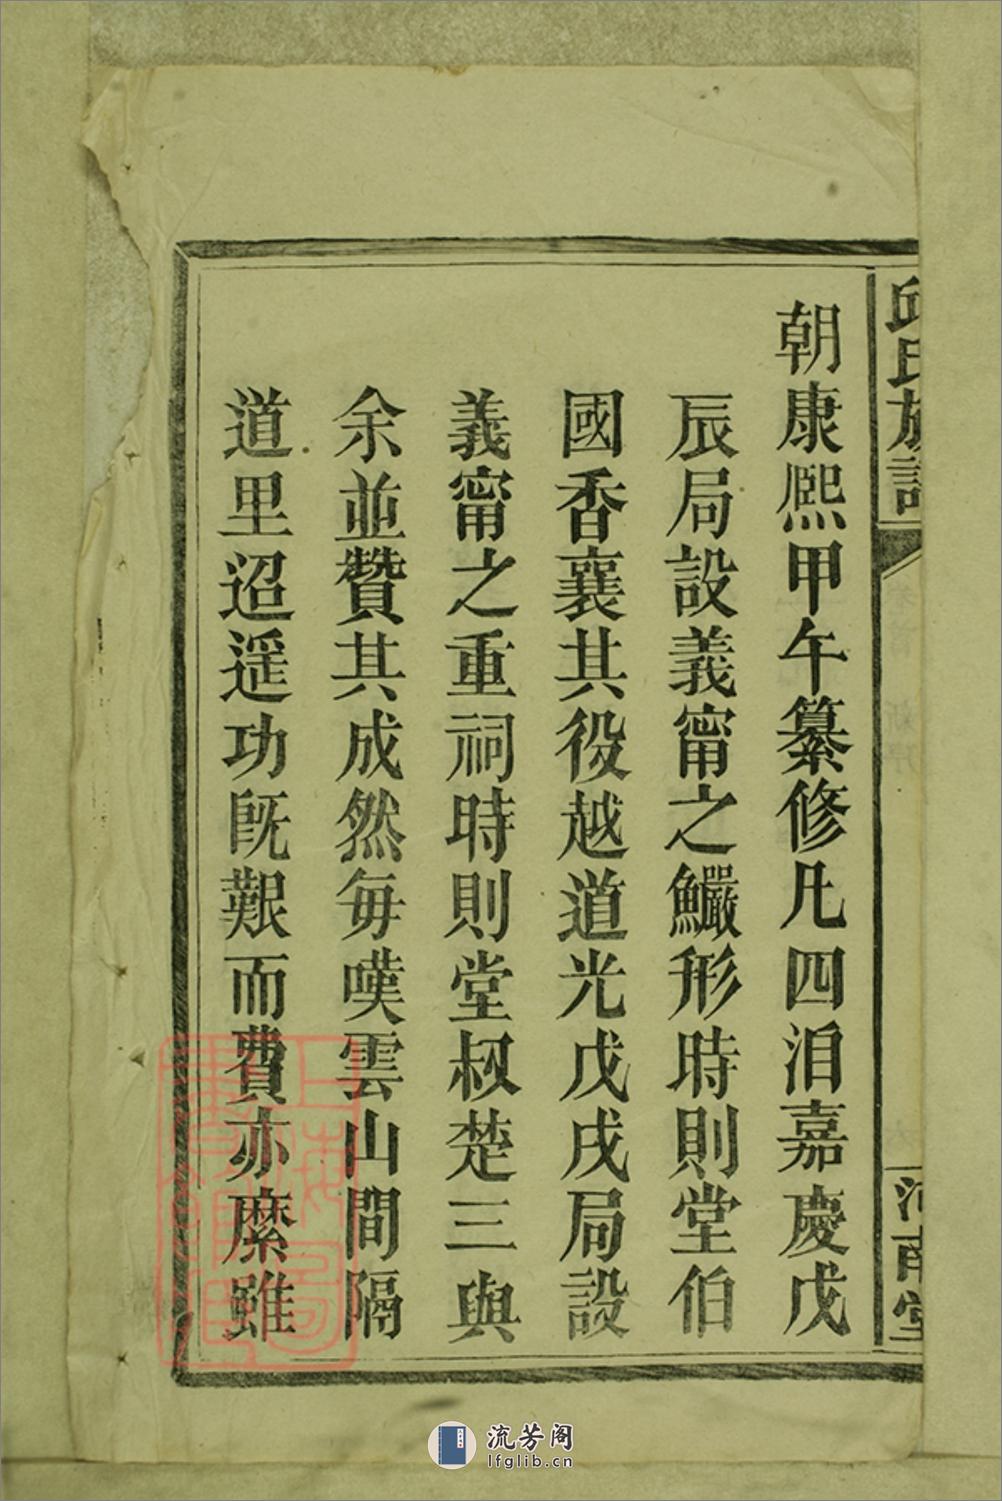 邱氏族譜
河南堂
朝康熙甲午纂修凡四洎嘉慶戊
辰局設義甯之鱲形時則堂伯
國香襄其役越道光戊戌局設
義甯之重祠時則堂叔楚三與
余並贊其成然每嘆雲山間隔
道里迢遥功旣艱而費亦糜雖
上海圖書館藏
流芳阁
lfglib.cn